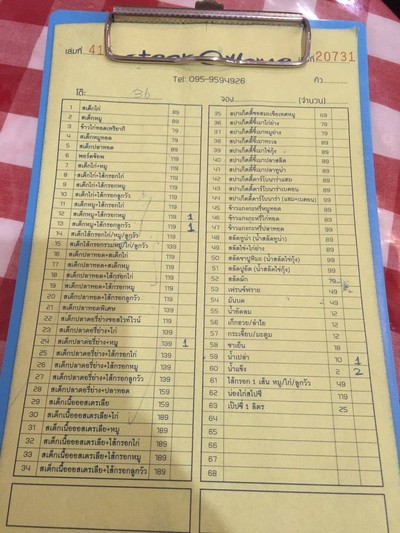 เล่มที่ 41 steak@Home ที่ 20731
Tel: 095-9594926 คิว
โต๊ะ 36 จอง (จำนวน)
1 สเต็กไก่ 89
2 สเต็กหมู 89
3 ข้าวไก่ทอดเทริยากิ 79
4 สเต็กหมูทอด 79
5 สเต็กปลาทอด 89
6 พอร์คช็อพ
7 สเต็กไก่+หมู 119
8 สเต็กไก่+ไส้กรอกไก่ 119
9 สเต็กไก่+ไส้กรอกหมู 119
10 สเต็กไก่+ไส้กรอกลูกวัว 119
11 สเต็กหมู+ไส้กรอกไก่ 119
12 สเต็กหมู+ไส้กรอกหมู 119 1
13 สเต็กหมู+ไส้กรอกลูกวัว 119 1
14 สเต็กไส้กรอกไก่/หมู/ลูกวัว
15 สเต็กไส้กรอกรวมหมู/ไก่/ลูกวัว 139
16 สเต็กปลาทอด+สเต็กไก่ 119
17 สเต็กปลาทอด+สเต็กหมู 119
18 สเต็กปลาทอด+ไส้กรอกไก่ 119
19 สเต็กปลาทอด+ไส้กรอกหมู 119
20 สเต็กปลาทอด+ไส้กรอกลูกวัว 119
21 สเต็กปลาทอดพิเศษ 139
22 สเต็กปลาดอรี่ย่างซอสไวท์ไวน์
23 สเต็กปลาดอรี่ย่าง+ไก่ 139
24 สเต็กปลาดอรี่ย่าง+หมู 139 1
25 สเต็กปลาดอรี่ย่าง+ไส้กรอกไก่ 139
26 สเต็กปลาดอรี่ย่าง+ไส้กรอกหมู 139
27 สเต็กปลาดอรี่ย่าง+ไส้กรอกลูกวัว 139
28 สเต็กปลาดอรี่ย่าง+ปลาทอด 159
29 สเต็กเนื้อออสเตรเลีย 159
30 สเต็กเนื้อออสเตรเลีย+ไก่ 189
31 สเต็กเนื้อออสเตรเลีย+หมู 189
32 สเต็กเนื้อออสเตรเลีย+ไส้กรอกไก่ 189
33 สเต็กเนื้อออสเตรเลีย+ไส้กรอกหมู 189
34 สเต็กเนื้อออสเตรเลีย+ไส้กรอกลูกวัว 189
35 สปาเก็ตตี้ซอสมะเขือเทศหมู 69
36 สปาเก็ตตี้ขี้เมาไก่ย่าง 79
37 สปาเก็ตตี้ขี้เมาหมูย่าง 79
38 สปาเก็ตตี้ขี้เมาทะเล 89
39 สปาเก็ตตี้ขี้เมาไข่กุ้ง 89
40 สปาเก็ตตี้ขี้เมาปลาสลิด 89
41 สปาเก็ตตี้ขี้เมาปลาทูน่า 89
42 สปาเก็ตตี้คาร์โบนาร่าแฮม 89
43 สปาเก็ตตี้คาร์โบนาร่าเบคอน 89
44 สปาเก็ตตี้คาร์โบนาร่า (แฮม+เบคอน) 99
45 ข้าวแกงกะหรี่หมูทอด
46 ข้าวแกงกะหรี่ไก่ทอด 89
47 ข้าวแกงกะหรี่ปลาทอด 99
48 สลัดทูน่า (น้ำสลัดทูน่า) 49
49 สลัดไข่+ไก่ย่าง 59
50 สลัดซาปูพิมะ (น้ำสลัดไข่กุ้ง) 99
51 สลัดปูอัด (น้ำสลัดไข่กุ้ง) 59
52 สลัดผัก
53 เฟรนช์ฟราย 49
54 มันบด 49
55 น้ำอัดลม 12
56 เก๊กฮวย/ลำไย 12
57 กระเจี๊ยบ/มะตูม 12
58 ชาเย็น 18
59 น้ำเปล่า 10 1
60 น้ำแข็ง 2 2
61 ไส้กรอก 1 เส้น หมู/ไก่/ลูกวัว 49
62 น่องไก่สไปซี่ 119
63 เป๊ปซี่ 1 ลิตร 25
64
65
66
67
68